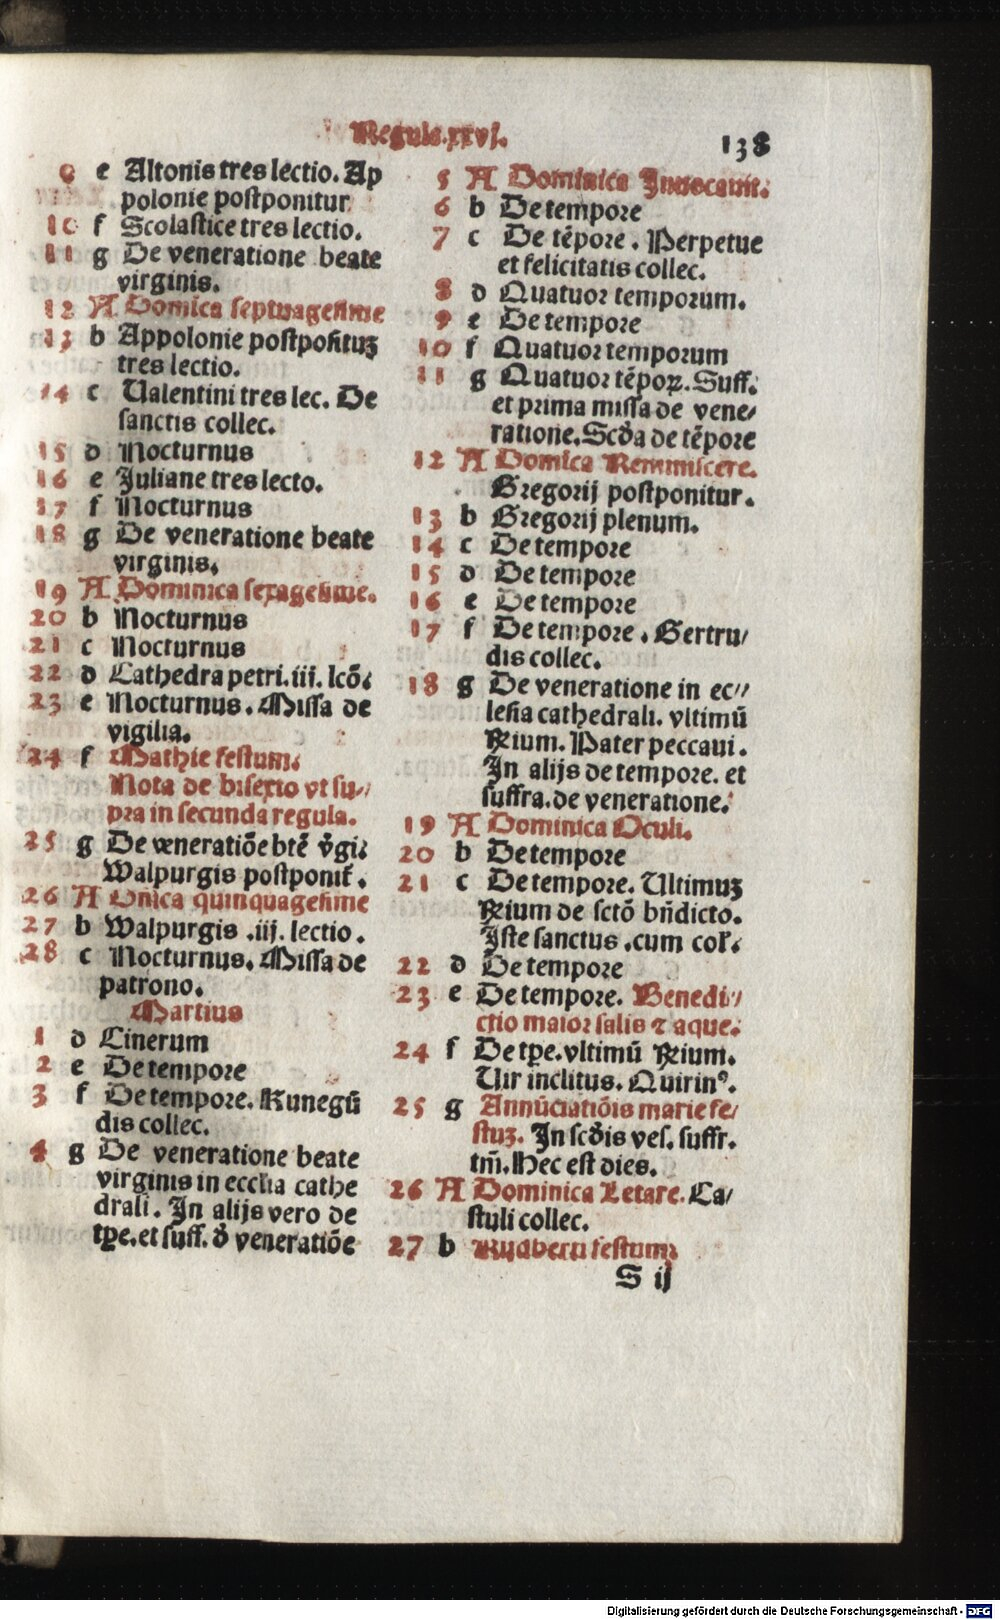 Regula.xxvj.
138
9 e Altonis tres lectio. Ap
polonie postponitur
10 f Scolastice tres lectio.
11 g De veneratione beate
virginis.
12 A Domica septuagesime
13 b Appolonie postposituʒ
tres lectio.
14 c Ualentini tres lec. De
sanctis collec.
15 d Nocturnus
16 e Juliane tres lecto.
17 f Nocturnus
18 g De veneratione beate
virginis.
19 A Dominica sexagesime.
20 b Nocturnus
21 c Nocturnus
22 d Cathedra petri. iii. lcō⸗
23 e Nocturnus. Missa de
vigilia.
24 f Mathie festum.
Nota de bisexto vt su⸗
pra in secunda regula.
25 g De veneratiōe btē v̄gi⸗
Walpurgis postponit̄.
26 A Dnica quinquagesime
27 b Walpurgis .iij. lectio.
28 c Nocturnus. Missa de
patrono.
Martius
1 d Cinerum
2 e De tempore
3 f De tempore. Kunegū
dis collec.
4 g De veneratione beate
virginis in ecclia cathe
drali. In alijs vero de
tꝑe. et suff. d̄ veneratiōe
5 A Dominica Inuocauit.
6 b De tempore
7 c De tēpore. Perpetue
et felicitatis collec.
8 d Quatuor temporum.
9 e De tempore
10 f Quatuor temporum
11 g Quatuor tēpoꝝ. Suff.
et prima missa de vene⸗
ratione. Scd̄a de tēpore
12 A Domica Reminiscere.
Gregorij postponitur.
13 b Gregorij plenum.
14 c De tempore
15 d De tempore
16 e De tempore
17 f De tempore. Gertru⸗
dis collec.
18 g De veneratione in ec⸗
lesia cathedrali. vltimū
℟ium. Pater peccaui.
In alijs de tempore. et
suffra. de veneratione.
19 A Dominica Oculi.
20 b De tempore
21 c De tempore. Ultimuʒ
℟ium de sctō bn̄dicto.
Iste sanctus .cum col̄.
22 d De tempore
23 e De tempore. Benedi⸗
ctio maior salis ⁊ aque.
24 f De tꝑe. vltimū ℟ium.
Uir inclitus. Quirinꝰ.
25 g Annūciatiōis marie fe⸗
stuʒ. In scd̄is ves. suffr.
tm̄. Hec est dies.
26 A Dominica Letare. Ca⸗
stuli collec.
27 b Rudberti festum
S ij
Digitalisierung gefördert durch die Deutsche Forschungsgemeinschaft - DFG